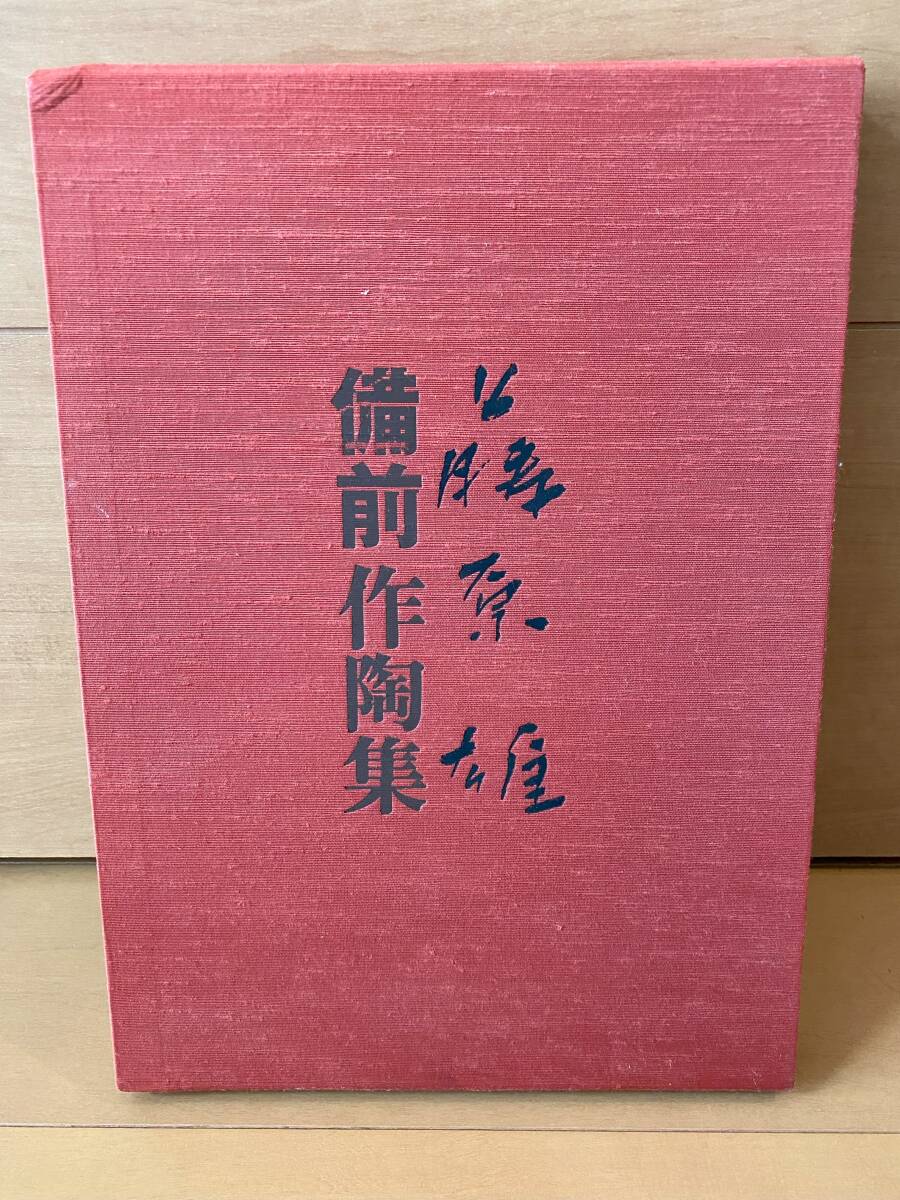 藤原雄
備前作陶集